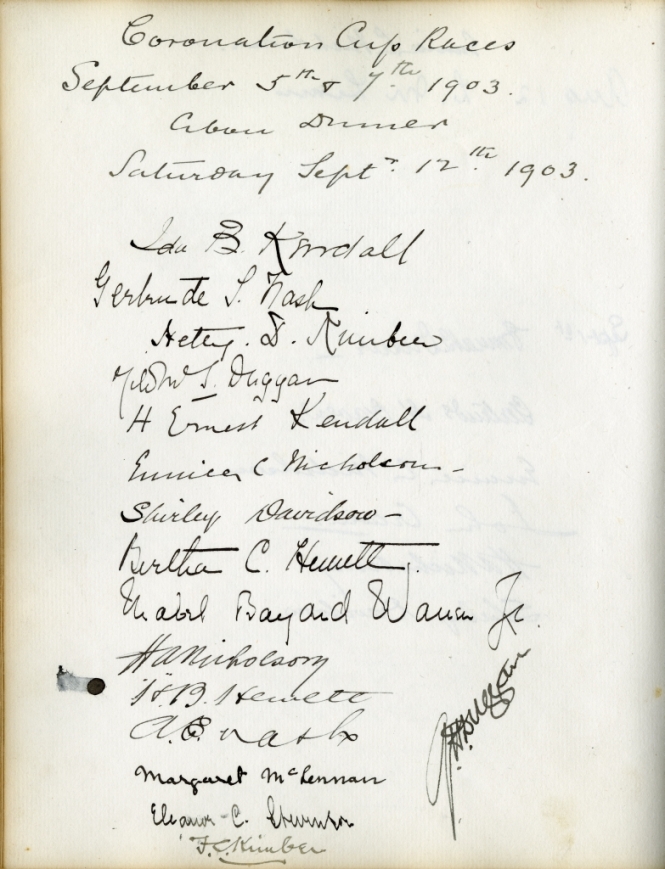 Coronation Cup Races
September 5th & 7th. 1903.
Dinner
Saturday Septr. 12th. 1903.
Ida B. Kendall
Gertrude S. Nash
D. Kimber
S. Duggan
H Ernest Kendall
Eunice C Nicholson -
Shirley Davidson -
Bertha C. Hewett.
Mabel Bayard Warren Jr.
HA Nicholson
H.B. Hewett
A.E. Nash
G.H. Duggan
Margaret McLennan
Eleanor C. Stevenson
F.C. Kimber